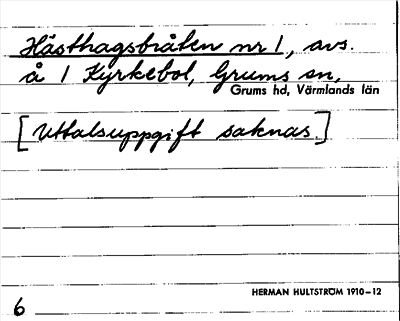 Hästhagsbråten nr 1, avs.
å 1 Kyrkebol, Grums sn,
Grums hd, Värmlands län
[Uttalsuppgift saknas.]
HERMAN HULTSTRÖM 1910–12
6